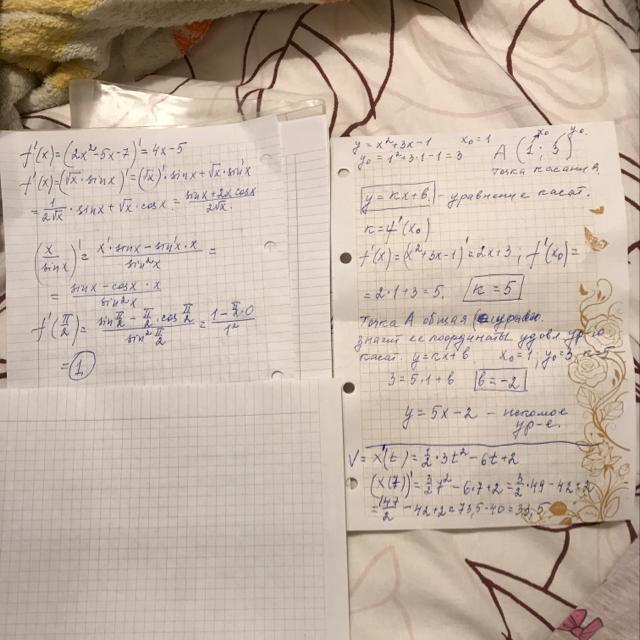 f'(x)=(2x²-5x-7)'=4x-5
f'(x)=(√x·sinx)'=(√x)'·sinx+√x·sin'x
=1/(2√x)·sinx+√x·cosx=(sinx+2x cosx)/(2√x)
(x/sinx)'=(x'·sinx-sin'x·x)/sin²x=
=(sinx-cosx·x)/sin²x
f'(π/2)=(sin π/2-π/2·cos π/2)/sin² π/2=(1-π/2·0)/1²
=1
y=x²+3x-1 x₀=1
y₀=1²+3·1-1=3 A(1;3) x₀ y₀
точка касания
y=kx+b - уравнение касат.
k=f'(x₀)
f'(x)=(x²+3x-1)'=2x+3; f'(x₀)=
=2·1+3=5. k=5
Точка А общая
значит ее координаты удовл. ур-ю
касат. y=kx+b x₀=1, y₀=3, k=5
3=5·1+b b=-2
y=5x-2 - искомое
ур-е.
V=x'(t)=1/2·3t²-6t+2
(x(7))'=3/2·7²-6·7+2=3/2·49-42+2
=147/2-42+2=73,5-40=33,5